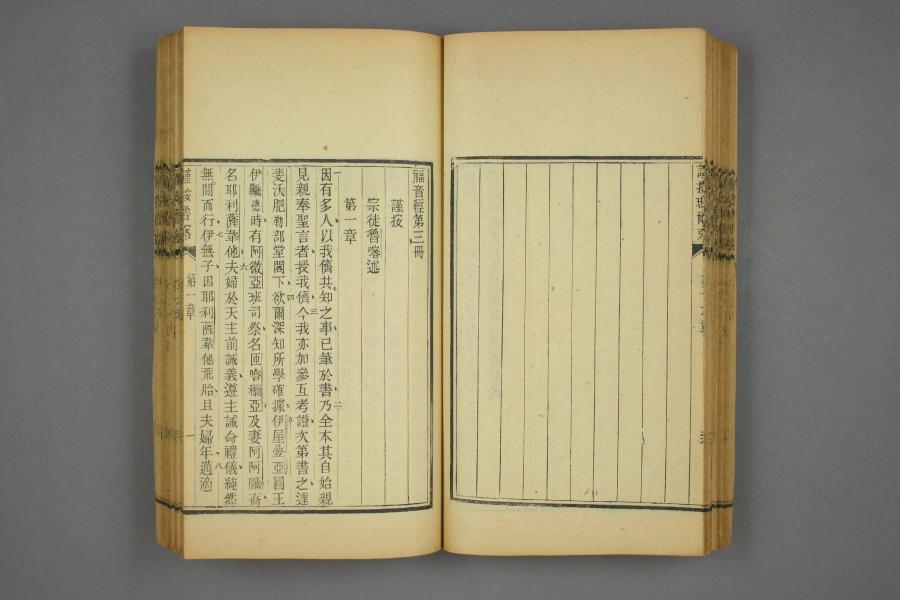 福音經第三冊
謹按
宗徒魯喀述
第一章
一因有多人以我儕共知之事已筆於書二乃全本其自始親
見親奉聖言者授我儕三今我亦加參互考證次第書之達
斐沃肥勒部堂閣下四欲爾深知所學確據五伊屋疊亞國王
伊時有阿微亞班司祭名亞及妻阿阿裔
名耶利薩韋他六夫婦於天主前誠義遵主誡命禮儀純然
無間而行七伊無子因耶利薩韋他荒胎且夫婦年邁八適
謹按魯喀
第一章
一